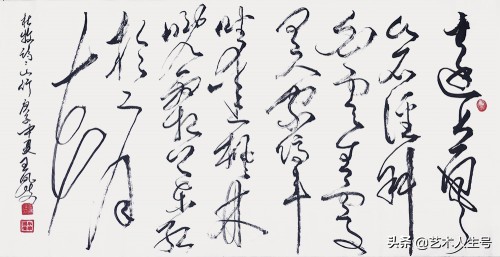 遠上寒
山石径斜
白雲生處
有人家停车
坐爱楓林
晚霜葉红
於二月
花
杜牧詩山行 庚子中夏王
头条 @艺术人生号